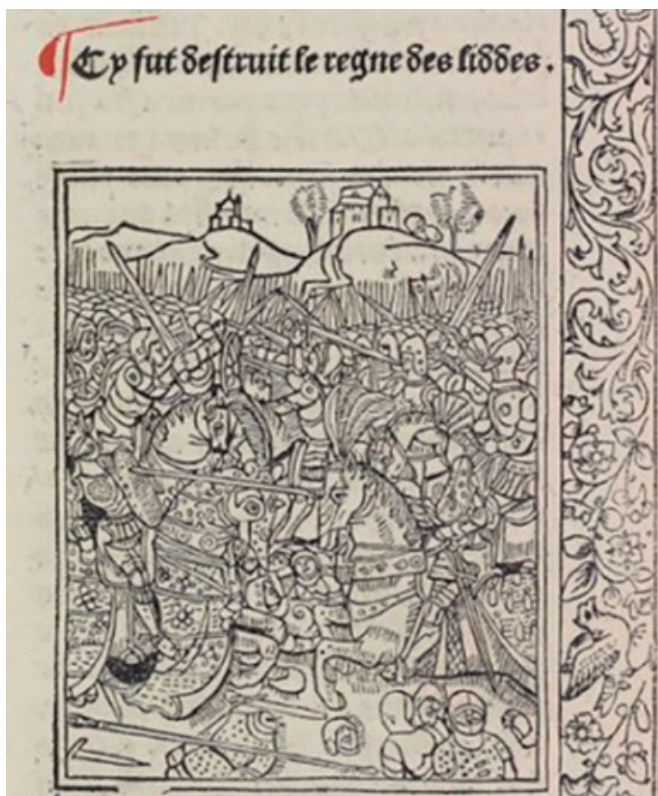 Cy fut destruit le regne des liddes.